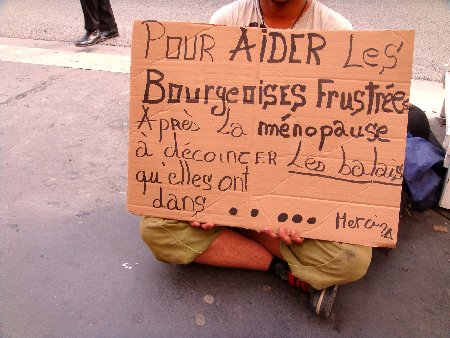 POUR AIDER LES
BourgeoISES FrustréEs
APRÈS LA ménopause
à décoincer Les balais
qu'elles ont
dans ••••• Merci